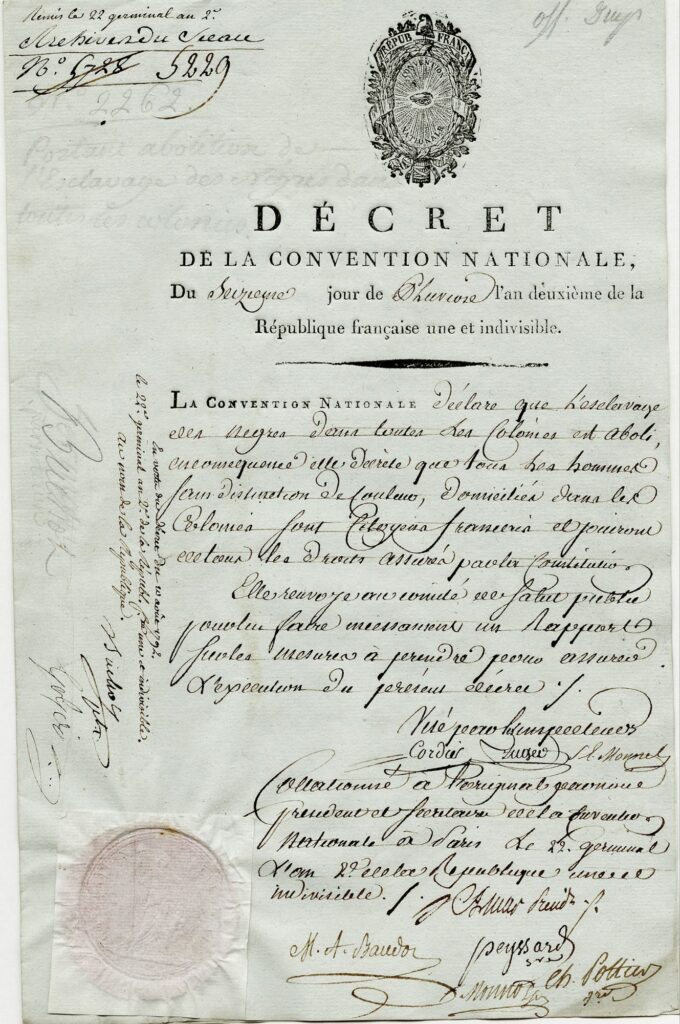 Remis le 22 germinal an 2e.
Archives du Sceau
No. 5728 5229
off. Dup
RÉPUB. FRANÇ.
CONVENTION
NATIONALE
2262.
Portant abolition de
l'Esclavage des Nègres dans
toutes les colonies
DÉCRET
DE LA CONVENTION NATIONALE,
Du Seizieme jour de Pluviose l'an deuxième de la
République française une et indivisible.
LA CONVENTION NATIONALE déclare que l'esclavage
des negres dans toutes les Colonies est aboli,
en consequence elle décrète que tous les hommes
sans distinction de Couleur, domiciliés dans les
Colonies sont Citoyens francais et jouiront
de tous les droits assurés par la Constitution.
Elle renvoye au comité de Salut public
pour lui faire incessament un Rapport
sur les mesures à prendre pour assurer
l'execution du présent décret ./.
Visé par les inspecteurs
Cordier S. E. Monnel
Collationné à l'original par nous
president et Secrétaires de la Convention
Nationale à Paris le 22. germinal
l'an 2e. de la Republique une et
indivisible. ./.
M. A. Baudot
peyssard
sre
Monnot
Ch. Pottier
sre
En vertu du décret du 10 août 1792.
le 22e. germinal an 2e. de la Républ. fse. une et indivisible.
au nom de la République.
Buchot
Gohier